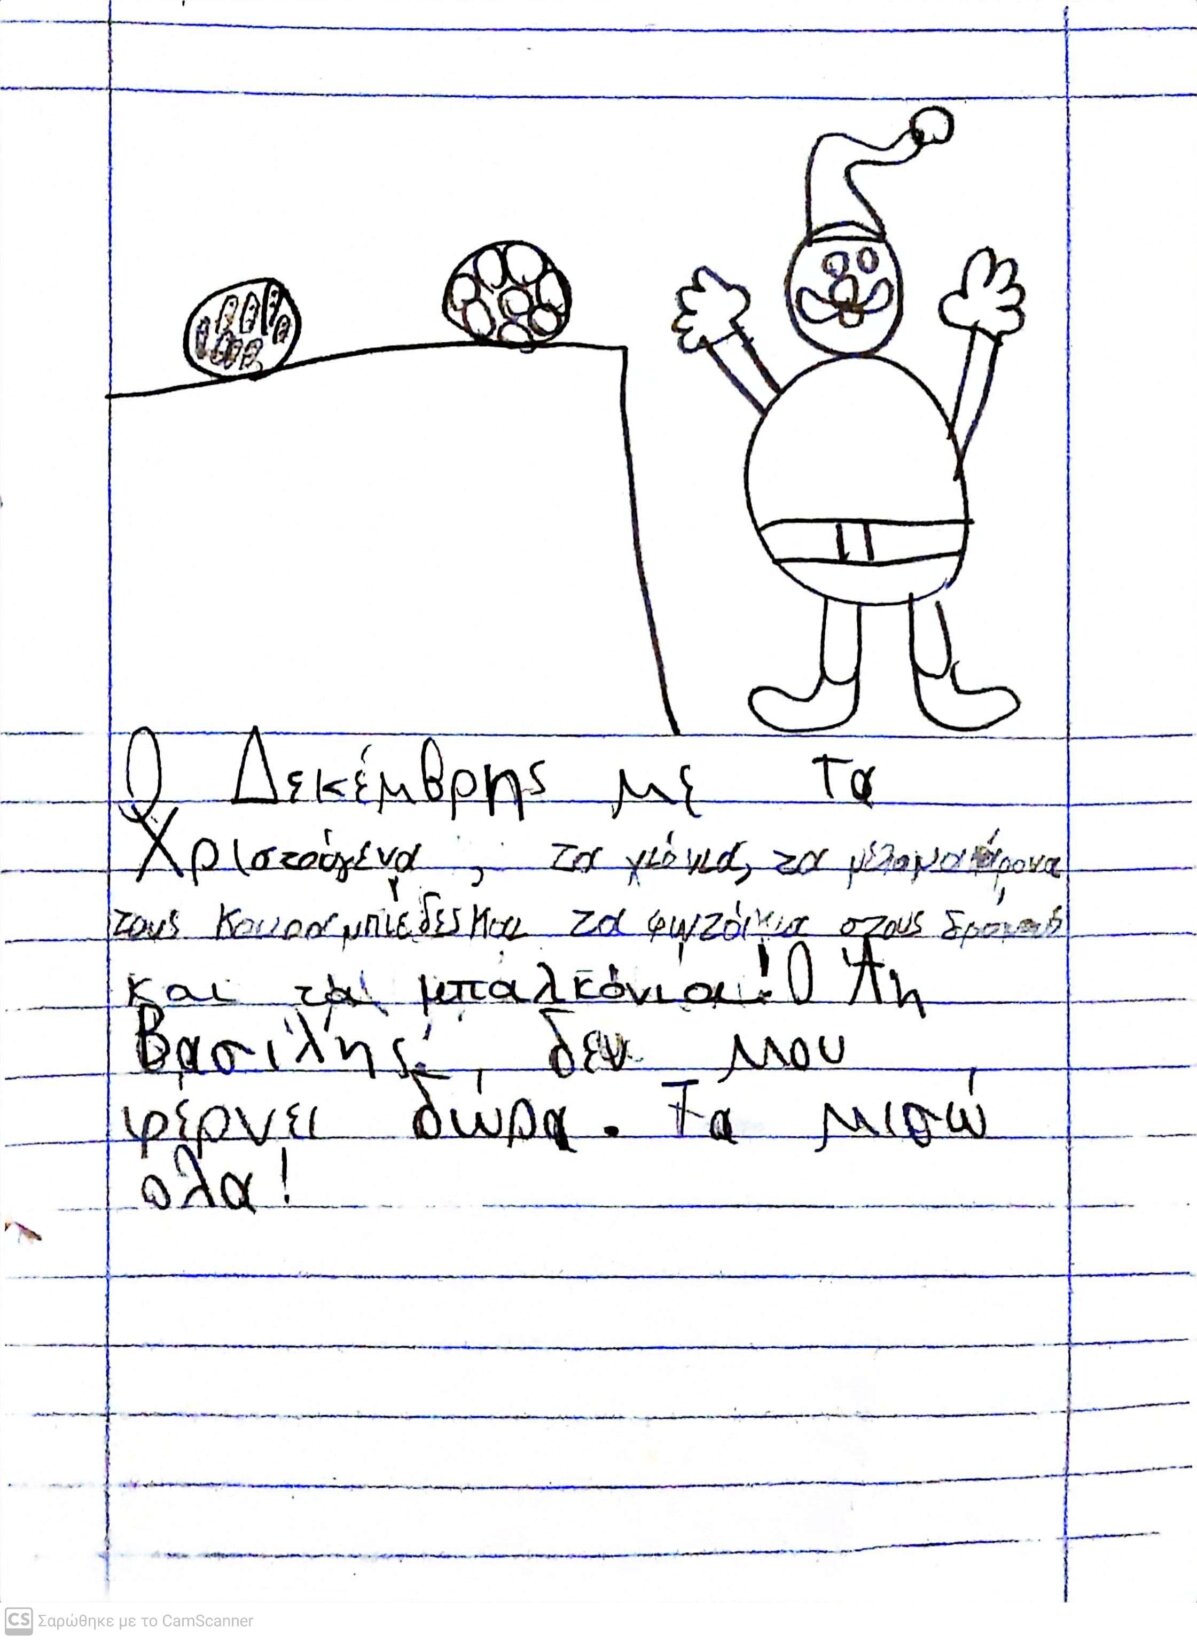 Ο Δεκέμβρης με τα
Χριστούγενα, τα χιόνια, τα μελομακάρονα
τους κουραμπιέδες και τα φωτάκια στους δρόμους
και τα μπαλκόνια! Ο Άη
Βασιλής, δεν μου
φέρνει δώρα. Τα μισώ
ολα!
CS Σαρώθηκε με το CamScanner